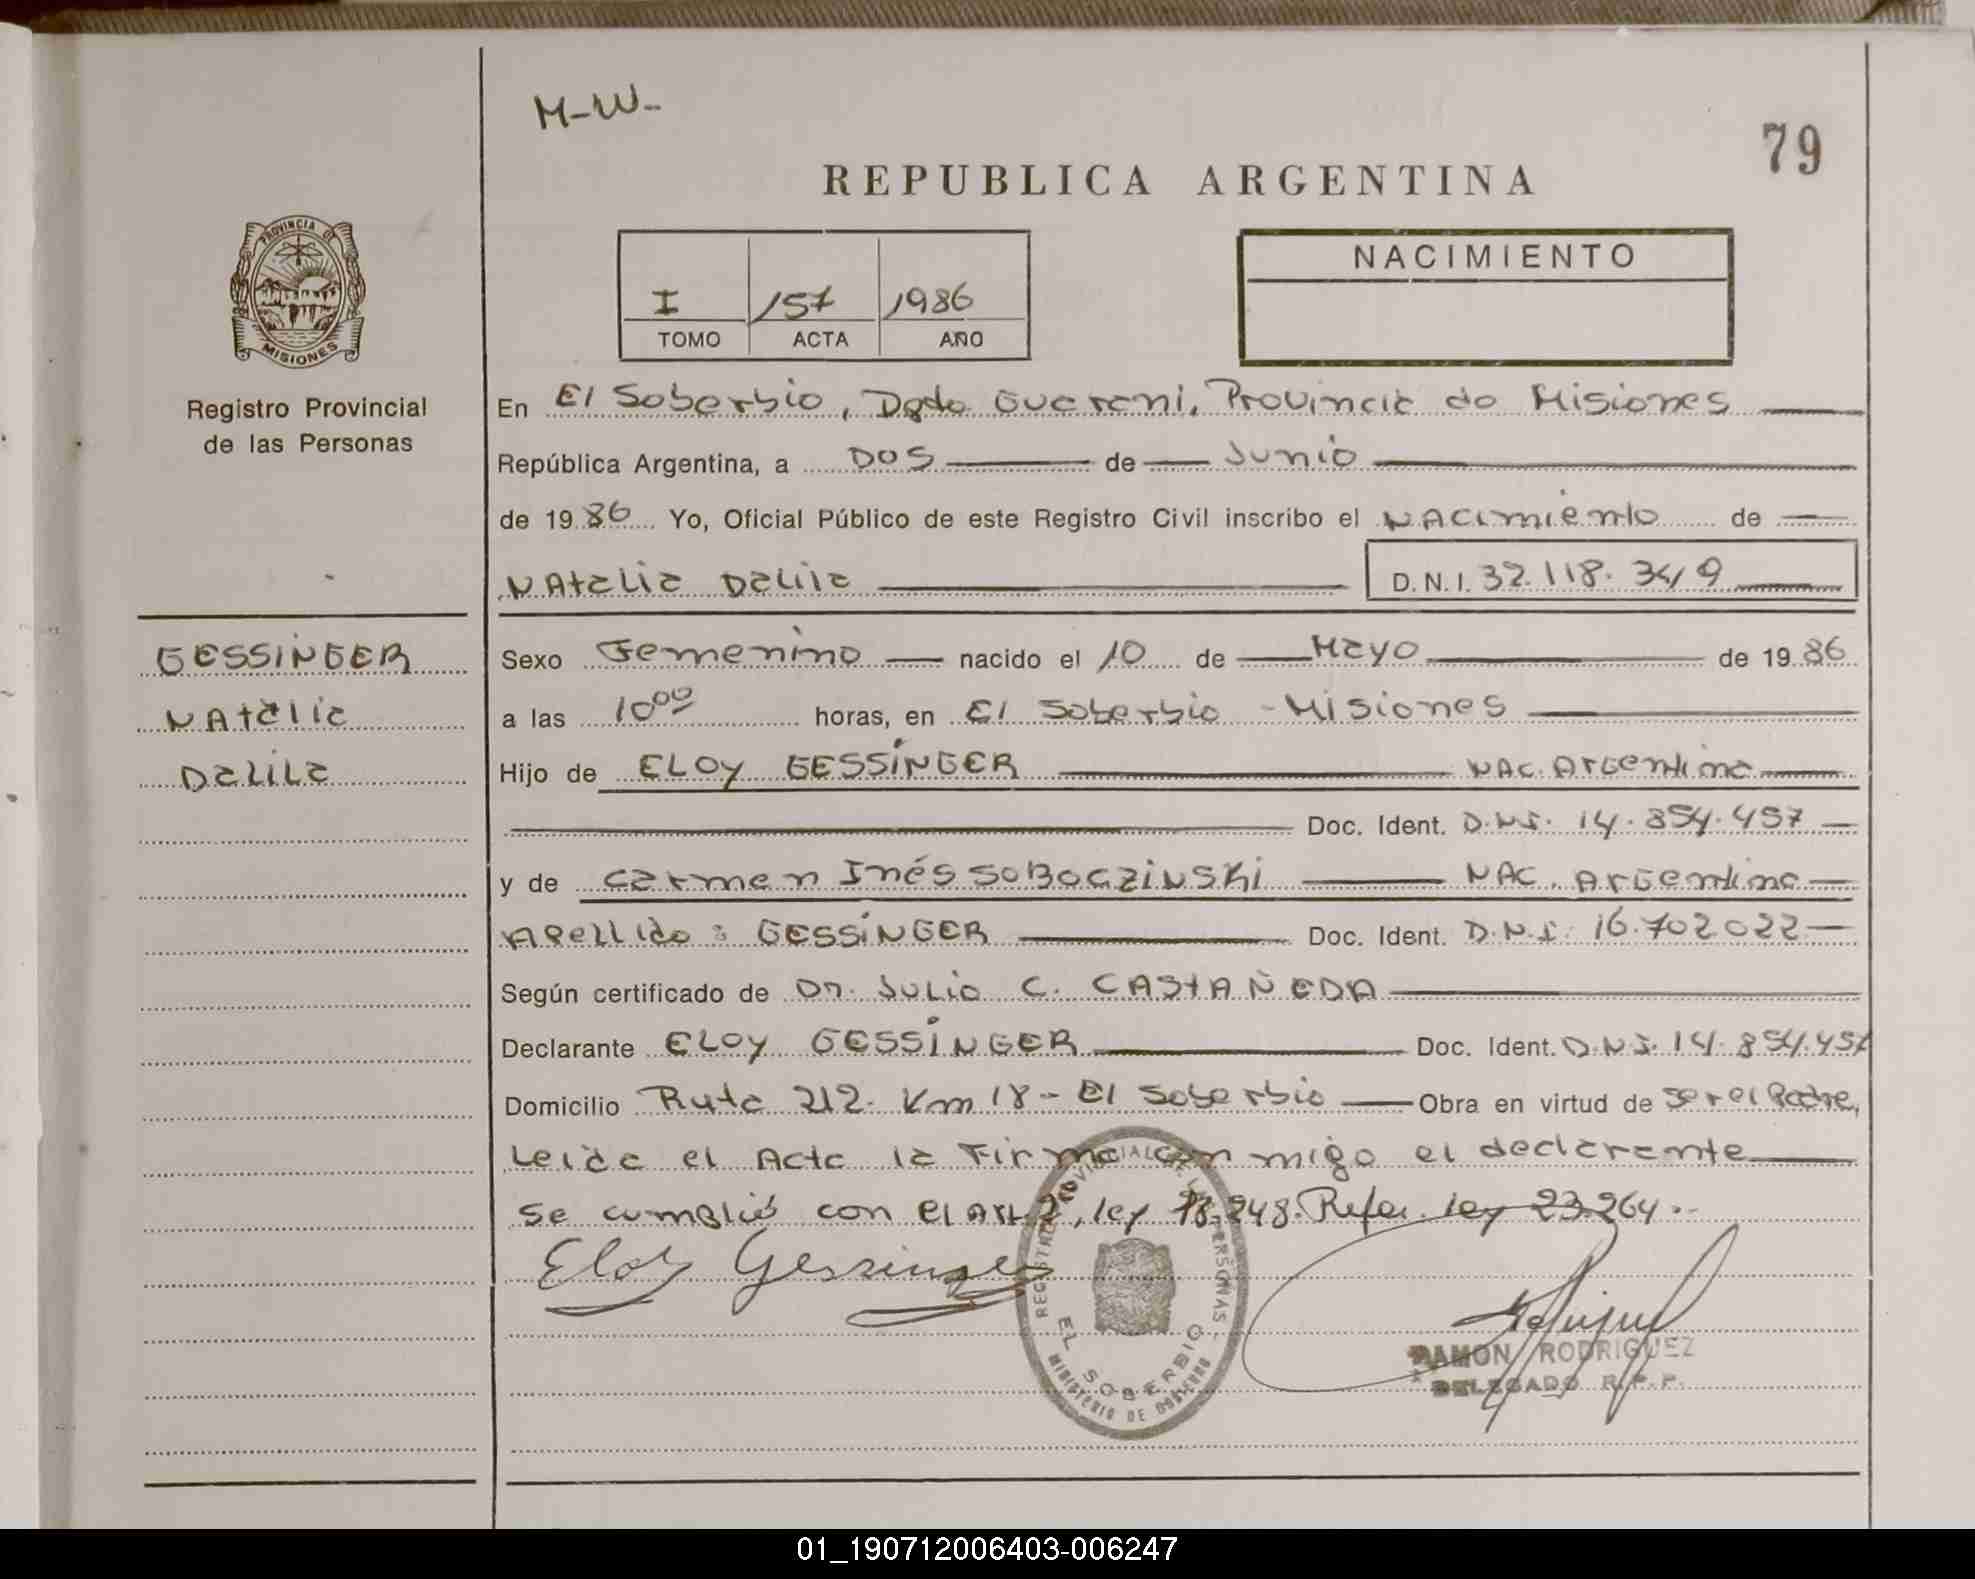 M-W-
79
REPUBLICA ARGENTINA
PROVINCIA DE
MISIONES
Registro Provincial
de las Personas
I 157 1986
TOMO ACTA AÑO
NACIMIENTO
En El Soberbio, Dpto Guarani, Provincia de Misiones
República Argentina, a Dos de Junio
de 1986 Yo, Oficial Público de este Registro Civil inscribo el Nacimiento de
Natalia Dalila D.N.I. 32.118.349
GESSINGER
Natalia
Dalila
Sexo Femenino nacido el 10 de Mayo de 1986
a las 10⁰⁰ horas, en El Soberbio - Misiones
Hijo de ELOY GESSINGER NAC. Argentina
Doc. Ident. D.N.I. 14.854.457
y de Carmen Inés SOBOCZINSKI NAC. Argentina
Apellido: GESSINGER Doc. Ident. D.N.I. 16.702.022
Según certificado de Dr. JULIO C. CASTAÑEDA
Declarante ELOY GESSINGER Doc. Ident. D.N.I. 14.854.457
Domicilio Ruta 212. Km 18 - El Soberbio Obra en virtud de ser el Padre,
Leida el Acta la Firma con migo el declarante
se cumplió con el Art. 2, ley 18.248. Refer. ley 23.264.-
Eloy Gessinger
REGISTRO PROVINCIAL DE LAS PERSONAS
EL SOBERBIO
MINISTERIO DE GOBIERNO
RAMON RODRIGUEZ
DELEGADO R.P.P.
01_190712006403-006247